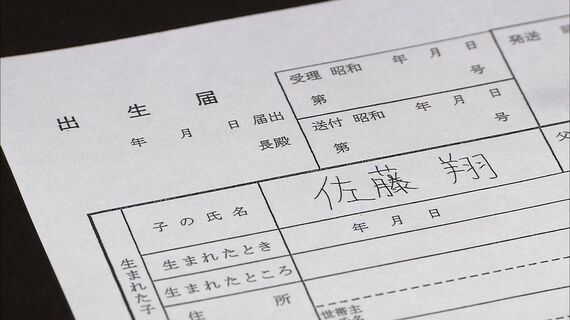 出生届
年 月 日 届出
長殿
受理 昭和 年 月 日
第 号
送付 昭和 年 月 日
第 号
発送
父
生まれた子
子の氏名
佐藤 翔
生まれたとき
年 月 日
生まれたところ
住所
世帯主